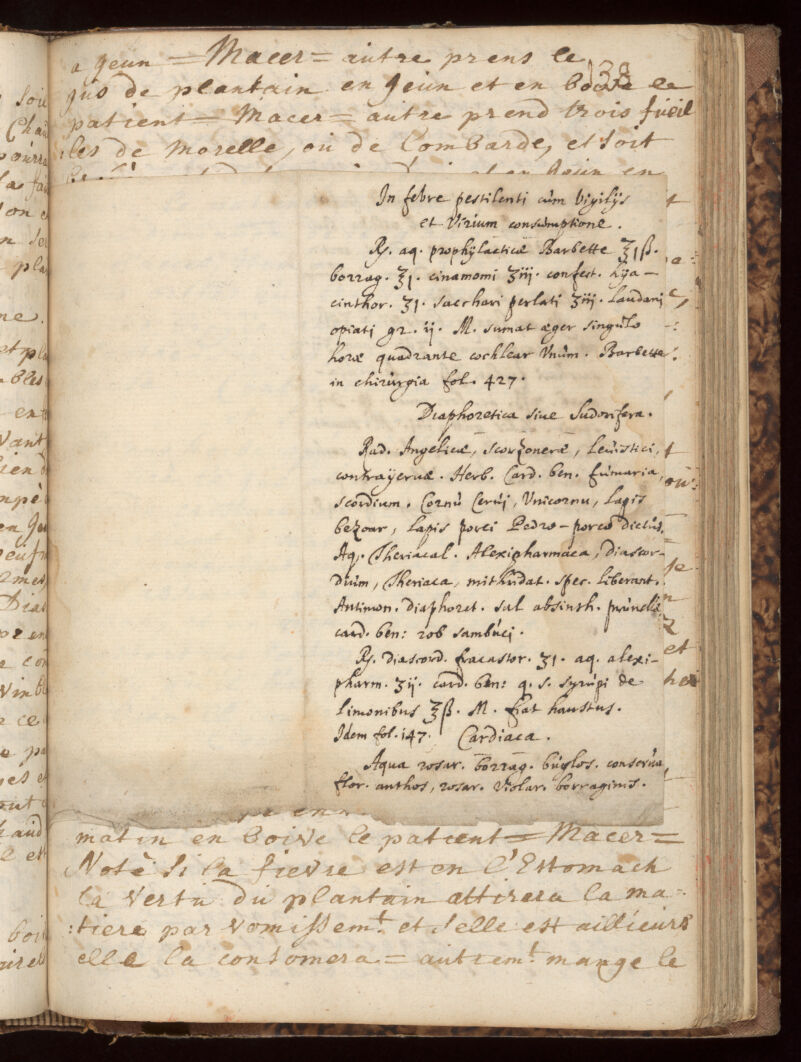 a jeun = Macer = autre prens le
138
jus de plantain en jeun et en boive le
patient = Macer = autre prend trois fueil
:les de morelle, ou de Combarde, et soit
In febre pestilenti cùm vigilijs
et Virium consumptione.
℞. aq. prophylacticæ Barbette ℥iß.
borrag. ℥i. cinamomi ʒiij. confect. hya-
cinthor. ʒi. sacchari perlati ʒiij. Laudani
opiati gr. ij. M. sumat æger singulo
horæ quadrante cochlear Vnùm. Barbette
in chirùrgia fol. 427.
Diaphoretica siue Sudorifera.
Rad. Angelicæ, scorzoneræ, Leuistici,
contrayeruæ. Herb. Card. ben. fùmaria,
scordium. Cornù Cerùj, Vnicornu, Lapis
bezoar, Lapis porci Pedro-porco dictùs.
Aq. Theriacal. Alexipharmaca, diascor-
dium, Theriaca, mithridat. spec. liberant.
Antimon. diaphoret. sal absinth. prùnell.
card. ben: rob sambùcj.
℞. diascord. fracastor. ʒi. aq. alexi-
pharm. ʒij. card. ben: q. s. syrùpi de
Limonibus ℥ß. M. fiat haustus.
Idem fol. 147. Cardiaca.
Aqua rosar. borrag. bùglos. conserùa
flor. anthos, rosar. violar. borraginis.
matin en boive le patient = Macer =
Notè Si la fievre est en l'Estomach
la vertu du plantain attirera la ma-
:tiere par vomissemt. et selle est aillieurs
elle la consomera = autremt. mange le